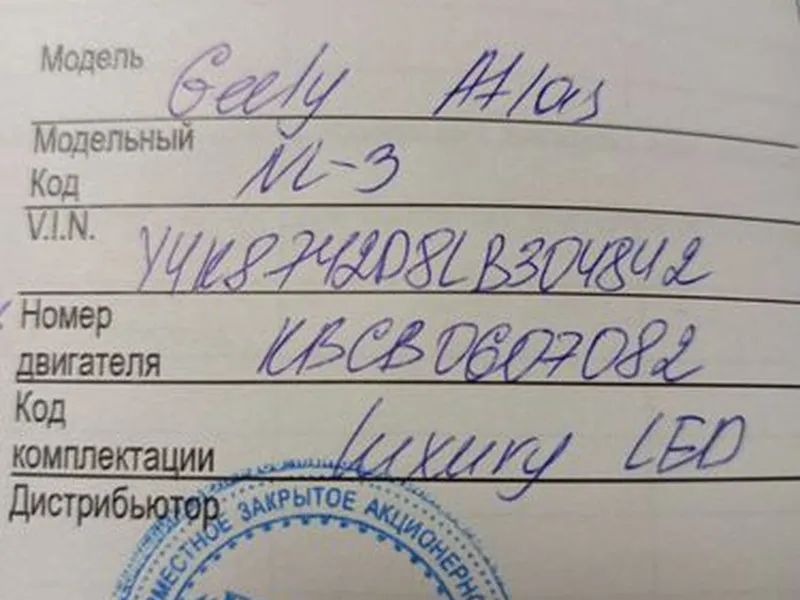 Модель Geely Atlas
Модельный
Код NL-3
V.I.N. Y4K8742D8LB304842
Номер
двигателя KBCB0607082
Код
комплектации Luxury LED
Дистрибьютор
ЗАКРЫТОЕ АКЦИОНЕРНО